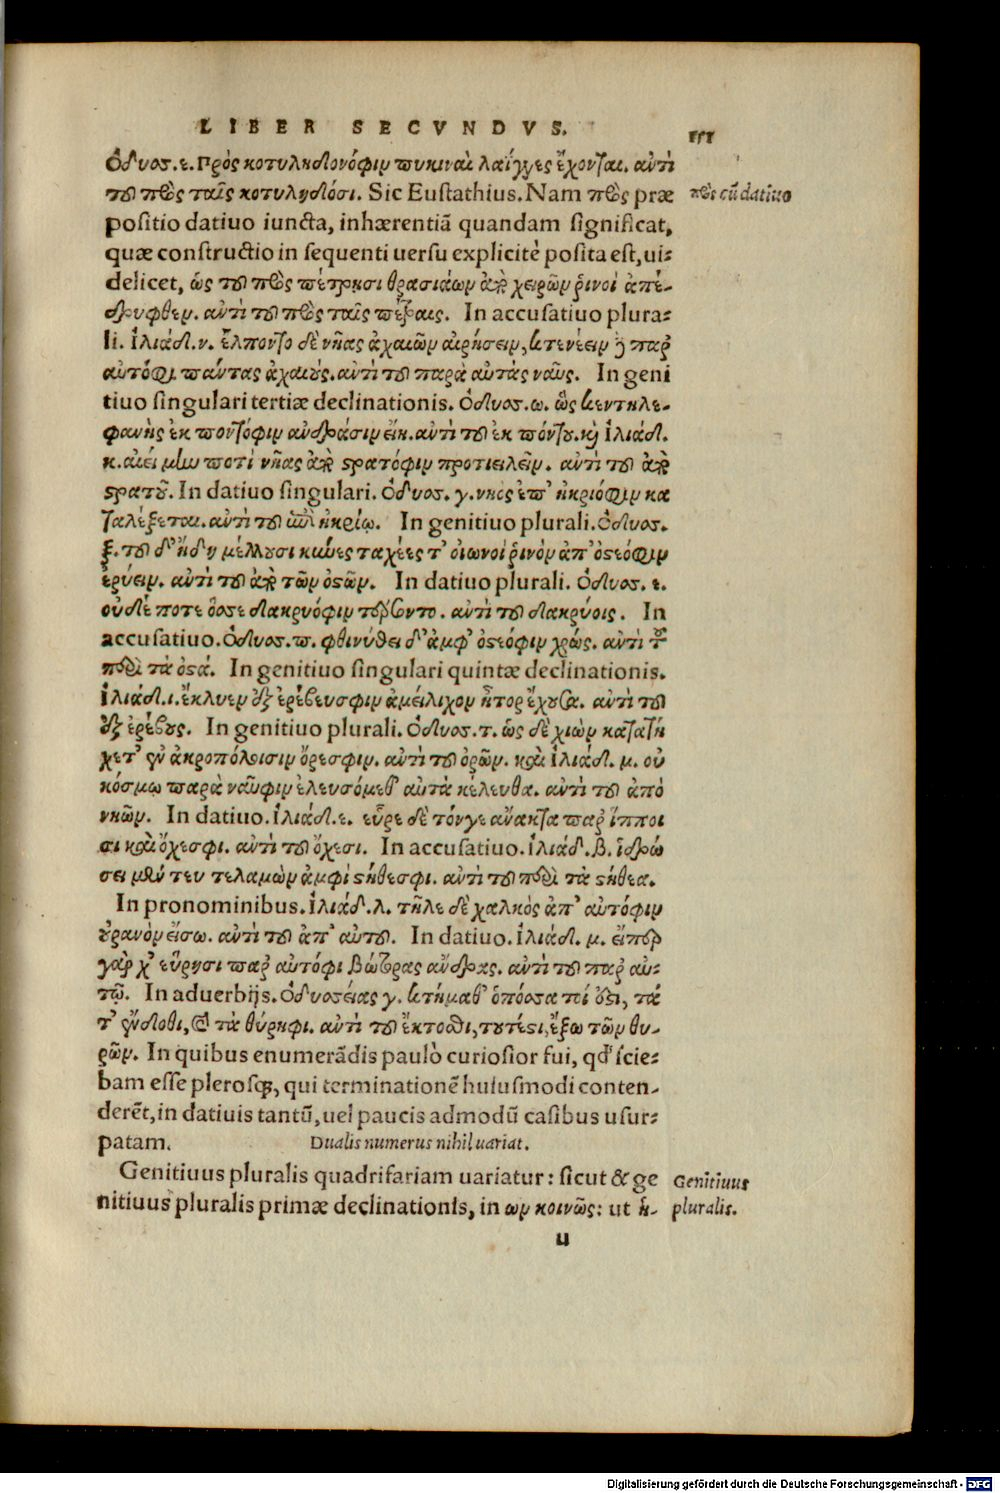 LIBER SECVNDVS.
ὀδυοσ.ε.πρὸς κοτυληδονόφιν πυκιναὶ λαίγγες ἔχονται. αντὶ
τοῦ πρὸς ταῖς κοτυληδόσι. Sic Eustathius. Nam πρὸς præ
πρὸς cū datiuo
positio datiuo iuncta, inhærentiā quandam significat,
quæ constructio in sequenti uersu explicitè posita est, ui-
delicet, ὡς τοῦ πρὸς πέτρησι θρασιάων ἀπὸ χειρῶν ῥινοὶ ἀπέ-
δρυφθεν. αντὶ τοῦ πρὸς ταῖς πέτραις. In accusatiuo plura-
li. ἰλιάδ.ν. ἔλποντο δὲ νῆας ἀχαιῶν αιρήσειν, κτενέειν
αυτόφι πάντας ἀχαιούς. αντὶ τοῦ παρὰ αυτὰς ναῦς. In geni
tiuo singulari tertiæ declinationis. ὀδυοσ.ω. ὣς κεν τηλε-
φανὴς ἐκ ποντόφιν ανδράσιν εἴη. αντὶ τοῦ ἐκ πόντου. καὶ ἰλιάδ.
κ. αιεί μιν ποτὶ νῆας ἀπὸ στρατόφιν προτιειλεῖν. αντὶ τοῦ ἀπὸ
στρατοῦ. In datiuo singulari. ὀδυοσ. γ. νηὸς ἐπ' ἠκριόφιν κα
ταλέξεται. αντὶ τοῦ ἐπὶ ἠκρίῳ. In genitiuo plurali. ὀδυοσ.
ξ. τοῦ δ' ἤδη μέλλουσι κύνες ταχέες τ' οιωνοὶ ῥινὸν ἀπ' ὀστεόφιν
ἐρύειν. αντὶ τοῦ ἀπὸ τῶν ὀστῶν. In datiuo plurali. ὀδυοσ. ε.
οὐδέ ποτε ὄσσε δακρυόφιν τέρσοντο. αντὶ τοῦ δακρύοις. In
accusatiuo. ὀδυοσ.π. φθινύθει δ' ἀμφ' ὀστεόφιν χρώς. αντὶ τοῦ
περὶ τὰ ὀστά. In genitiuo singulari quintæ declinationis.
ἰλιάδ.ι. ἔκλυεν ἐξ ἐρέβευσφιν ἀμείλιχον ἦτορ ἔχουσα. αντὶ τοῦ
ἐξ ἐρέβους. In genitiuo plurali. ὀδυοσ.τ. ὡς δὲ χιὼν κατατή
κετ' ἐν ἀκροπόλοισιν ὄρεσφιν. αντὶ τοῦ ὀρῶν. καὶ ἰλιάδ. μ. οὐ
κόσμω παρὰ ναῦφιν ἐλευσόμεθ' αυτὰ κέλευθα. αντὶ τοῦ ἀπὸ
νηῶν. In datiuo. ἰλιάδ.ε. εὗρε δὲ τόνγε ἄνακτα παρ' ἵπποι
σι καὶ ὄχεσφι. αντὶ τοῦ ὄχεσι. In accusatiuo. ἰλιάδ. β. ἱδρώ
σει μέν τευ τελαμὼν ἀμφὶ στήθεσφι. αντὶ τοῦ περὶ τὰ στήθεα.
In pronominibus. ἰλιάδ.λ. τῆλε δὲ χαλκὸς ἀπ' αυτόφιν
οὐρανὸν εἴσω. αντὶ τοῦ ἀπ' αυτοῦ. In datiuo. ἰλιάδ. μ. εἴπερ
γάρ χ' εὕρησι παρ' αυτόφι βώτορας ἄνδρας. αντὶ τοῦ παρ' αυ-
τῷ. In aduerbijs. ὀδυοσείας γ. κτήμαθ' ὁπόσσα τά
τ' ἔνδοθι, καὶ τὰ θύρηφι. αντὶ τοῦ ἔκτοσθι, τουτέστι, ἔξω τῶν θυ-
ρῶν. In quibus enumerādis paulò curiosior fui, qđ scie-
bam esse plerosq;, qui terminationē huiusmodi conten-
derēt, in datiuis tantū, uel paucis admodū casibus usur-
patam. Dualis numerus nihil uariat.
Genitiuus pluralis quadrifariam uariatur: sicut & ge
Genitiuus
nitiuus pluralis primæ declinationis, in ων κοινῶς: ut
pluralis.
u
Digitalisierung gefördert durch die Deutsche Forschungsgemeinschaft - DFG